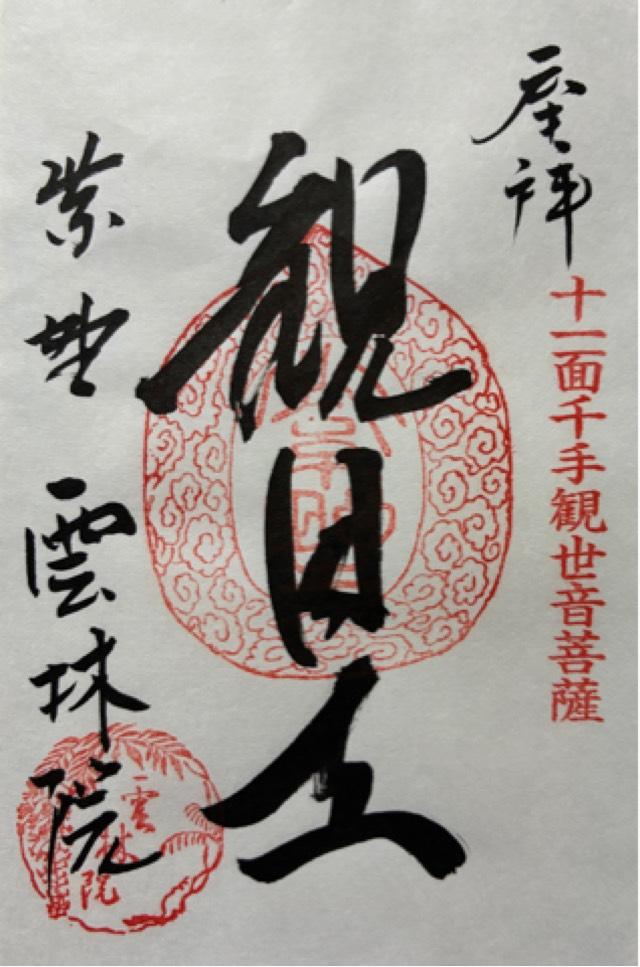 拝
十一面千手観世音菩薩
観自在
紫野 雲林院
雲林院